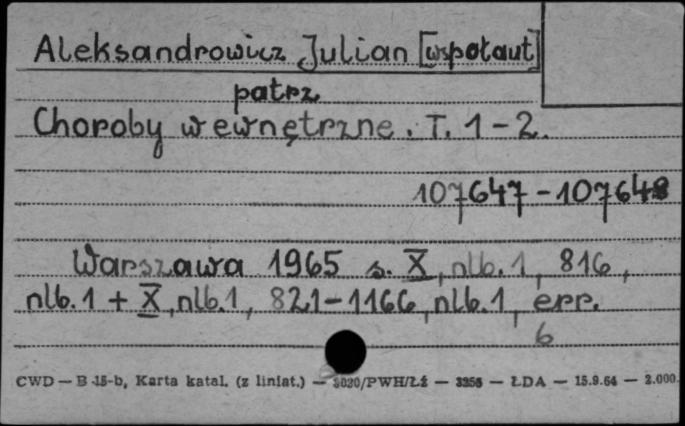 Aleksandrowicz Julian [współaut]
patrz
Choroby wewnętrzne. T. 1-2.
107647-107648
Warszawa 1965 s. X, nlb. 1, 816,
nlb. 1 + X, nlb. 1, 821-1166, nlb. 1, err.
6
CWD — B 15-b, Karta katal. (z liniat.) — 3020/PWH/Łź — 3256 — ŁDA — 15.9.64 — 2.000.